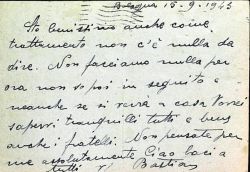 Bologna 15-9-1943
Sto benissimo anche come
trattamento non c'è nulla da
dire. Non facciamo nulla per
ora non so poi in seguito e
neanche se si verrà a casa Vorrei
sapervi tranquilli tutti e bene
anche i fratelli. Non pensate per
me assolutamente Ciao baci a
tutti